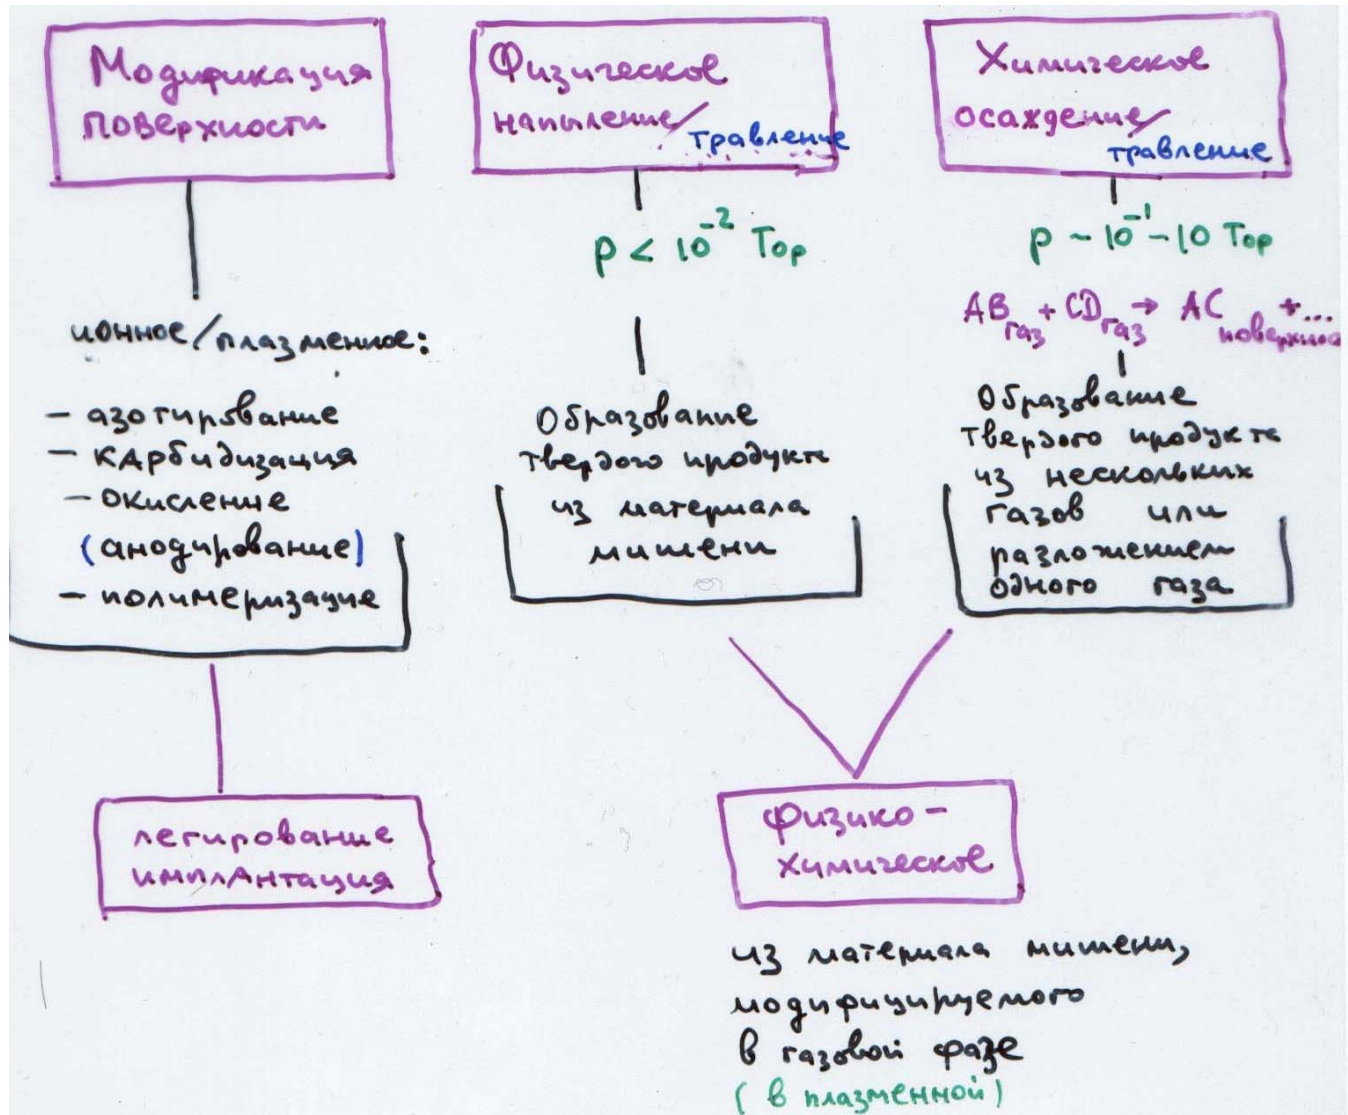 Модификация
поверхности
ионное/плазменное:
– азотирование
– карбидизация
– окисление
(анодирование)
– полимеризация
легирование
имплантация
Физическое
напыление/
травление
p < 10⁻² Тор
Образование
твердого продукта
из материала
мишени
Химическое
осаждение/
травление
p ~ 10⁻¹ – 10 Тор
AB газ + CD газ → AC +...
Образование
твердого продукта
из нескольких
газов или
разложением
одного газа
физико-
химическое
из материала мишени,
модифицируемого
в газовой фазе
(в плазменной)